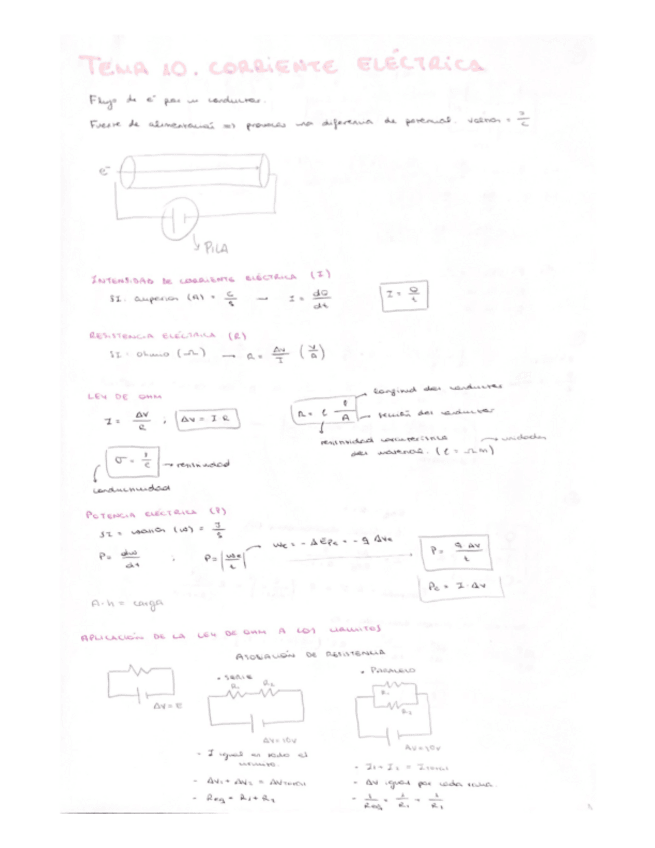 TEMA 10. CORRIENTE ELÉCTRICA
Flujo de e⁻ por un conductor.
Fuente de alimentación => provocar una diferencia de potencial. voltion = J/C
e⁻
PILA
INTENSIDAD DE CORRIENTE ELÉCTRICA (I)
SI: amperion (A) = C/s → I = dQ/dt I = Q/t
RESISTENCIA ELÉCTRICA (R)
SI: ohmio (Ω) → R = ΔV/I (V/A)
LEY DE OHM
I = ΔV/R ; ΔV = I R
R = ρ l/A
longitud del conductor
sección del conductor
resistividad característica del material. (ρ = Ω m) → unidades
→ resistividad
conductividad
POTENCIA ELÉCTRICA (P)
SI = (W) = J/s
P = dW/dt ; P = |We/t| We = - ΔEpe = - q ΔVe P = q ΔV/t
Pe = I · ΔV
A·h = carga
APLICACIÓN DE LA LEY DE OHM A LOS CIRCUITOS
ASOCIACIÓN DE RESISTENCIA
• SERIE
R₁ R₂
• PARALELO
R₁
R₂
ΔV = 10V
ΔV = 10V
- I igual en todo el circuito.
- ΔV₁ + ΔV₂ = ΔVtotal
- Req = R₁ + R₂
- I₁ + I₂ = Itotal
- ΔV igual por cada rama.